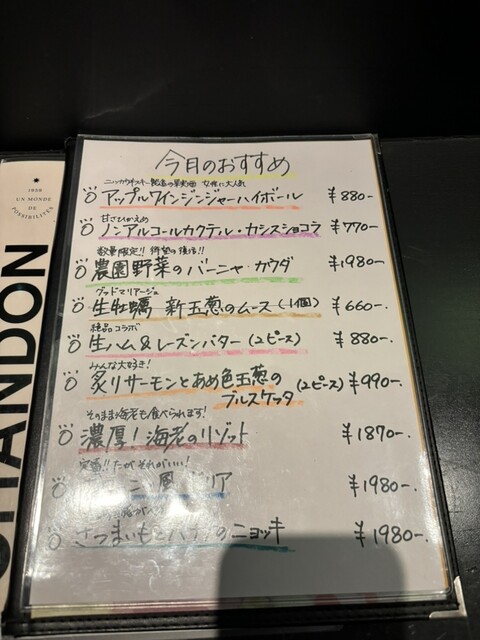 今月のおすすめ
ニッカウヰスキー 女性に大人気
アップルワインジンジャーハイボール ¥880-.
甘さひかえめ
ノンアルコールカクテル・カシスショコラ ¥770-.
数量限定!! 待望の復活!!
農園野菜のバーニャ・カウダ ¥1980-.
グッドマリアージュ
生牡蠣 新玉葱のムース(1個) ¥660-.
絶品コラボ
生ハム&レーズンバター(2ピース) ¥880-.
みんな大好き!
炙りサーモンとあめ色玉葱の
ブルスケッタ (2ピース) ¥990-.
そのまま海老も食べられます!
濃厚!海老のリゾット ¥1870-.
定番!! だがそれがいい!
風 リア ¥1980-.
さつまいもと のニョッキ ¥1980-.
1959
UN MONDE
DE
POSSIBILITÉS
CHANDON